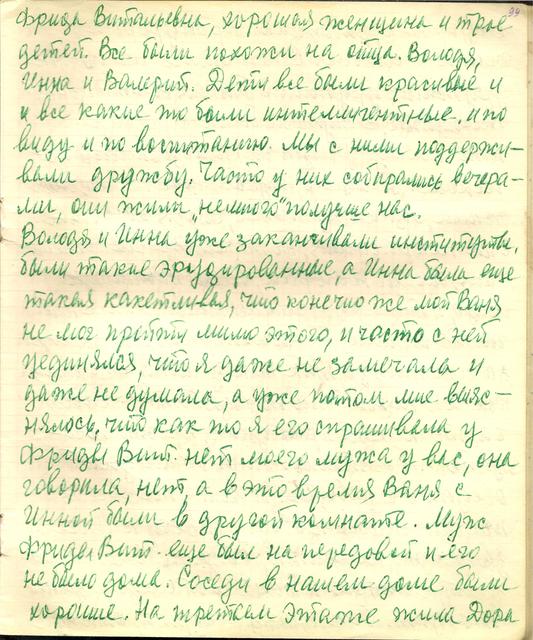 39
Фрида Витальевна, хорошая женщина и трое
детей. Все были похожи на отца. Володя,
Инна и Валерий. Дети все были красивые и
и все какие то были интеллигентные. и по
виду и по воспитанию. Мы с ними поддержи-
вали дружбу. Часто у них собирались вечера-
ми, они жили „немного" получше нас.
Володя и Инна уже заканчивали институты,
были такие эрудированные, а Инна была еще
такая какетливая, что конечно же мой Ваня
не мог пройти мимо этого, и часто с ней
уединялся, что я даже не замечала и
даже не думала, а уже потом мне выяс-
нялось, что как то я его спрашивала у
Фриды Вит. нет моего мужа у вас, она
говорила, нет, а в это время Ваня с
Инной были в другой комнате. Муж
Фриды Вит. еще был на передовой и его
не было дома. Соседи в нашем доме были
хорошие. На третьем этаже жила Дора